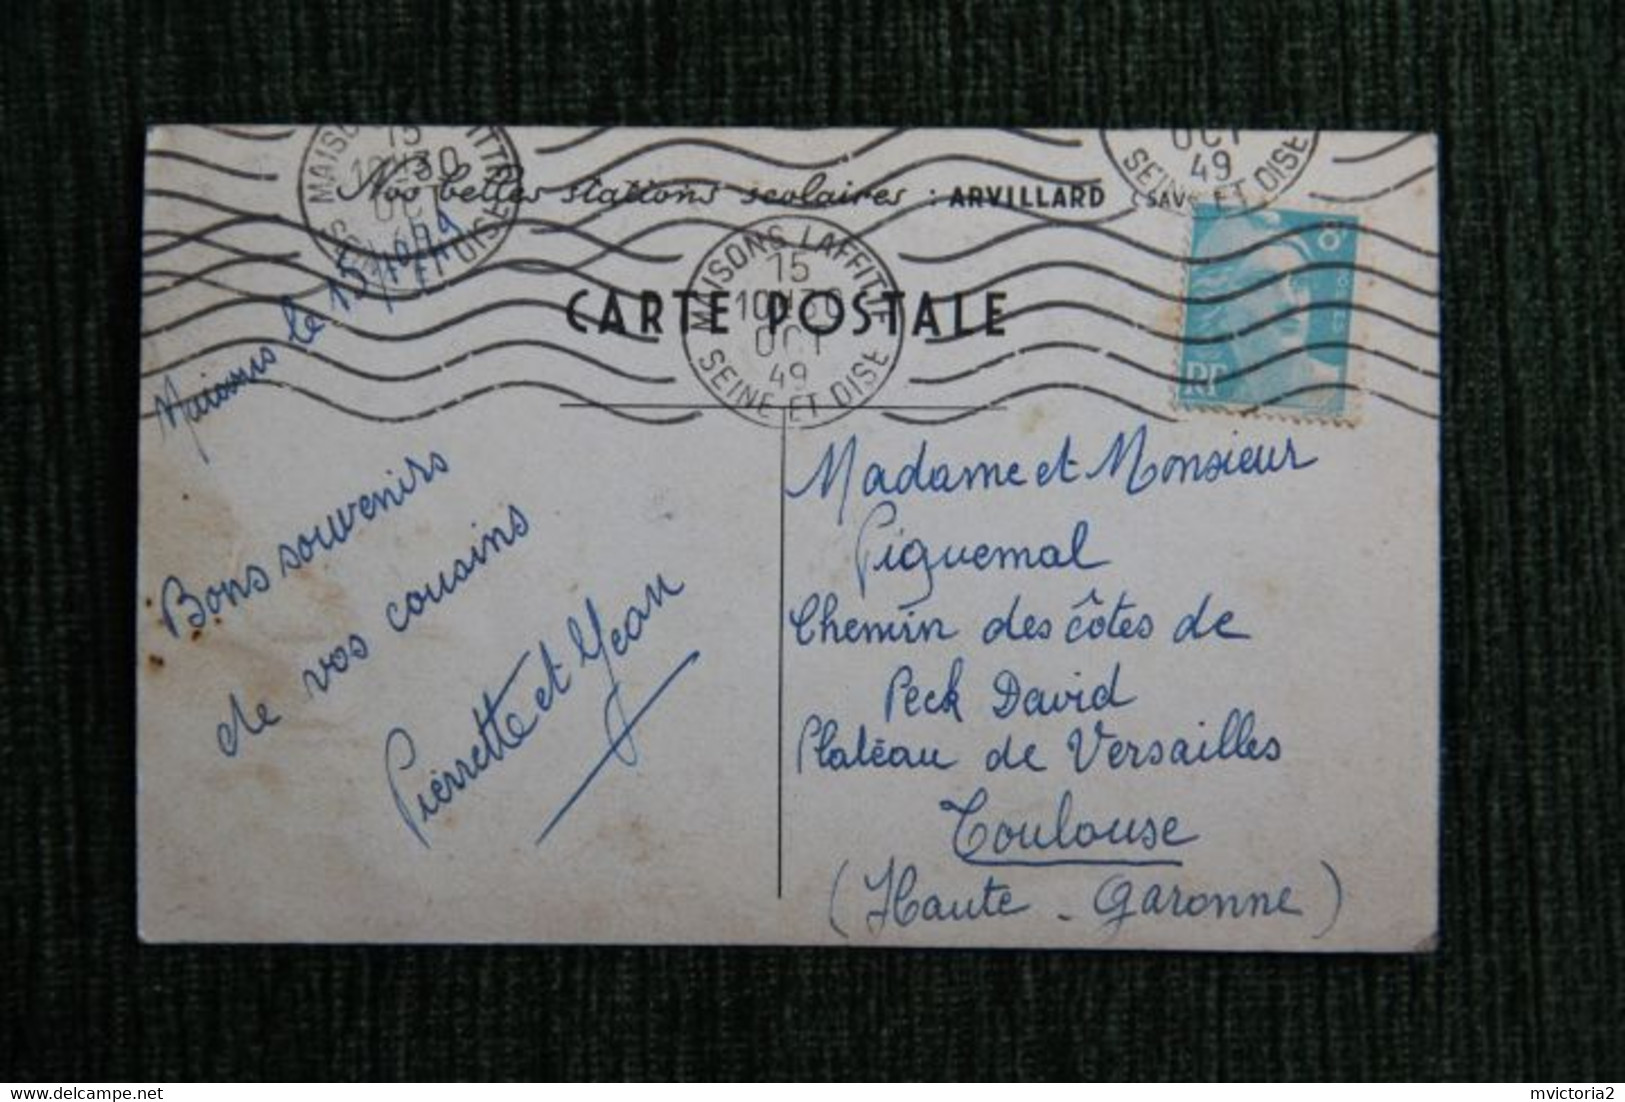 Nos belles stations scolaires : ARVILLARD (SAV
CARTE POSTALE
MAISONS LAFFITTE
15
10H30
OCT
49
SEINE ET OISE
15
10H30
OCT
MAISONS LAFFITTE
SEINE ET OISE
OCT
49
SEINE ET OISE
8F
RF
Maisons le 15/10/49
Bons souvenirs
de vos cousins
Pierrette et Jean
Madame et Monsieur
Piguemal
Chemin des côtes de
Peck David
Platéau de Versailles
Toulouse
(Haute - Garonne)
mvictoria2